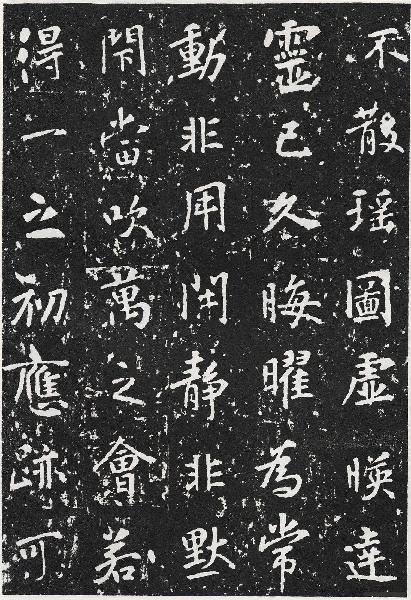 不散瑶圖虛暎達
靈已久晦曜為常
動非用開静非默
閇當吹萬之會若
得一之初應跡可